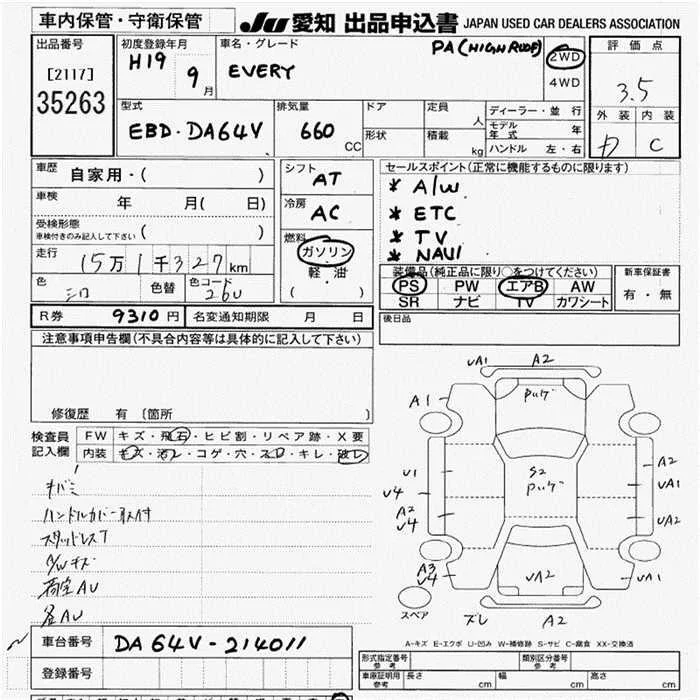 車内保管・守衛保管
JU 愛知 出品申込書 JAPAN USED CAR DEALERS ASSOCIATION
出品番号
[2117]
35263
初度登録年月
H19 9月
車名・グレード
EVERY
PA (HIGH ROOF)
2WD
4WD
評価点
3.5
外装 内装
C
型式
EBD・DA64V
排気量
660 CC
ドア
形状
定員 人
積載 kg
ディーラー・並行
モデル年式 年
ハンドル 左・右
車歴
自家用・( )
車検 年 月( 日)
受検形態
車検付きのみ記入して下さい ( )
走行
15万1千327km
色
シロ
色替
色コード
26U
シフト
AT
冷房
AC
燃料
ガソリン
軽・油
( )
セールスポイント(正常に機能するものに限ります)
* A/W
* ETC
* TV
* NAVI
装備品(純正品に限り○をつけてください)
PS PW エアB AW
SR ナビ TV カワシート
新車保証書
有・無
R券 9310円
名変通知期限 月 日
後日品
注意事項申告欄(不具合内容等は具体的に記入して下さい)
修復歴 有 〔箇所 〕
検査員
記入欄
FW キズ・飛石・ヒビ割・リペア跡・X要
内装 キズ・汚レ・コゲ・穴・スレ・キレ・破レ
キバミ
ハンドルカバー取付
スタッドレス
A/Wキズ
荷室AU
各AU
UA1 A2
A1
pug"
U1
U4
A2
U4
S2
pug"
A2
UA1
UA2
A3
U4
UA2
UA1
スペア
ズレ
A2
A-キズ E-エクボ U-凹み W-補修跡 S-サビ C-腐食 XX-交換済
車台番号 DA64V-214011
登録番号
形式指定番号
参考
類別区分番号
参考
車庫証明用
参考
長さ cm
幅 cm
高さ cm